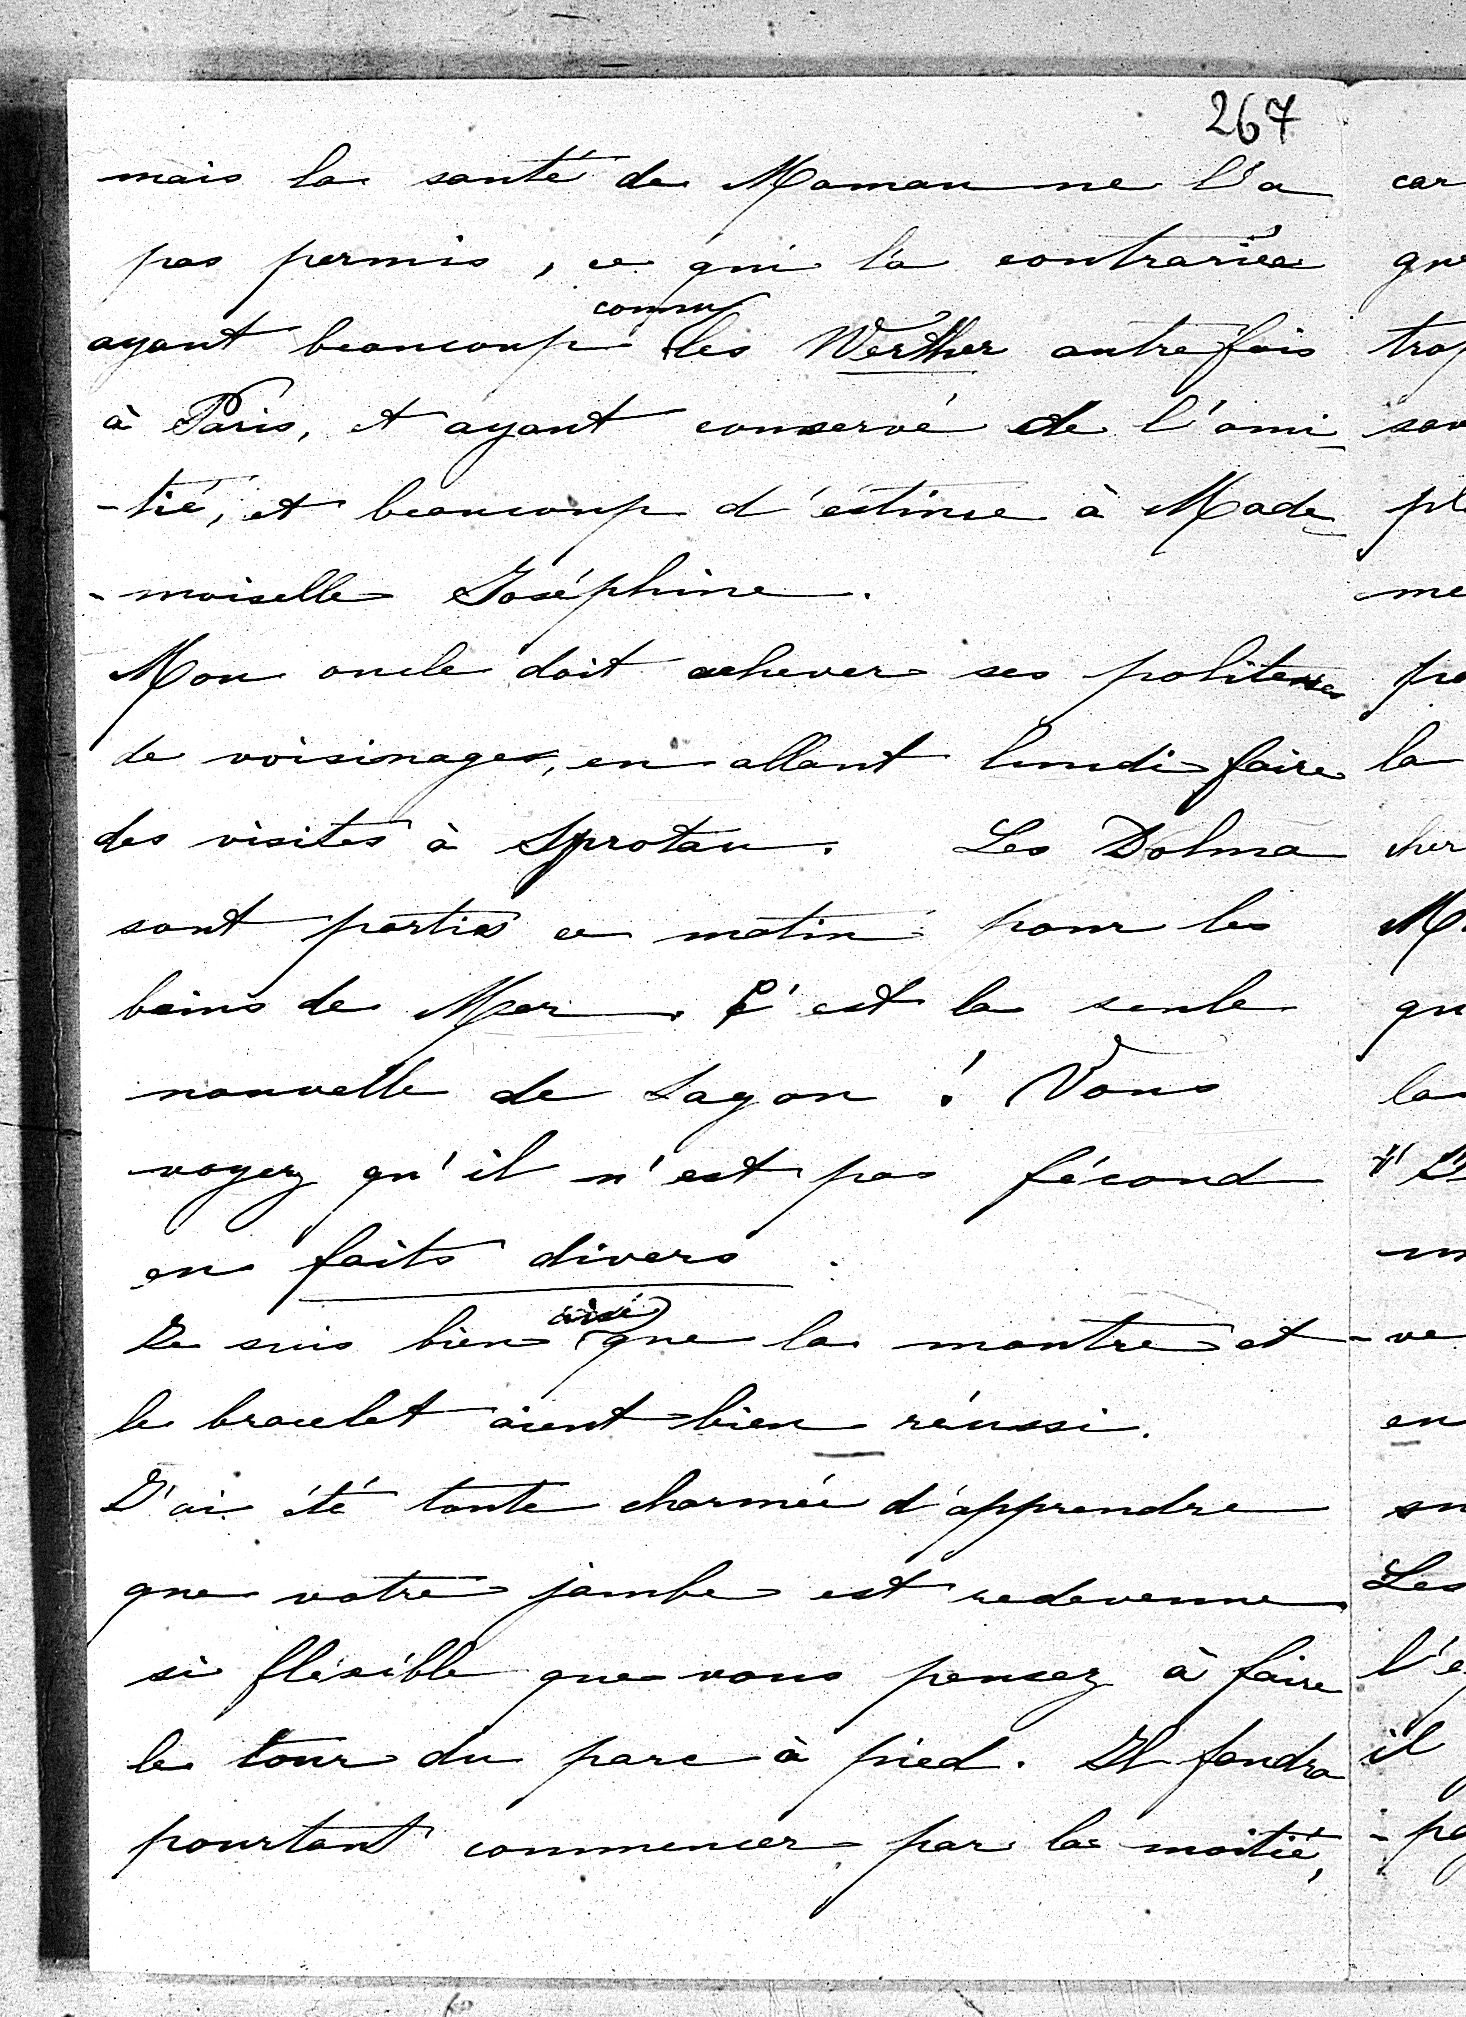 267
mais la santé de Maman ne l'a
pas permis, ce qui l'a contrariée
connu
ayant beaucoup les Werther autrefois
à Paris, et ayant conservé de l'ami
-tié, et beaucoup d'estime à Made
-moiselle Joséphine.
Mon oncle doit achever ses politesses
de voisinages, en allant lundi faire
des visites à Sprotau. Les Dolma
sont partis ce matin pour les
bains de Mer. C'est la seule
nouvelle de Sagan ! Vous
voyez qu'il n'est pas fécond
en faits divers.
aisé
Je suis bien que la montre et
le bracelet aient bien réussi.
J'ai été toute charmée d'apprendre
que votre jambe est redevenue
si fléxible que vous pensez à faire
le tour du parc à pied. Il faudra
pourtant commencer par la moitié,
car
trop
me
la
cher
en
Les
il